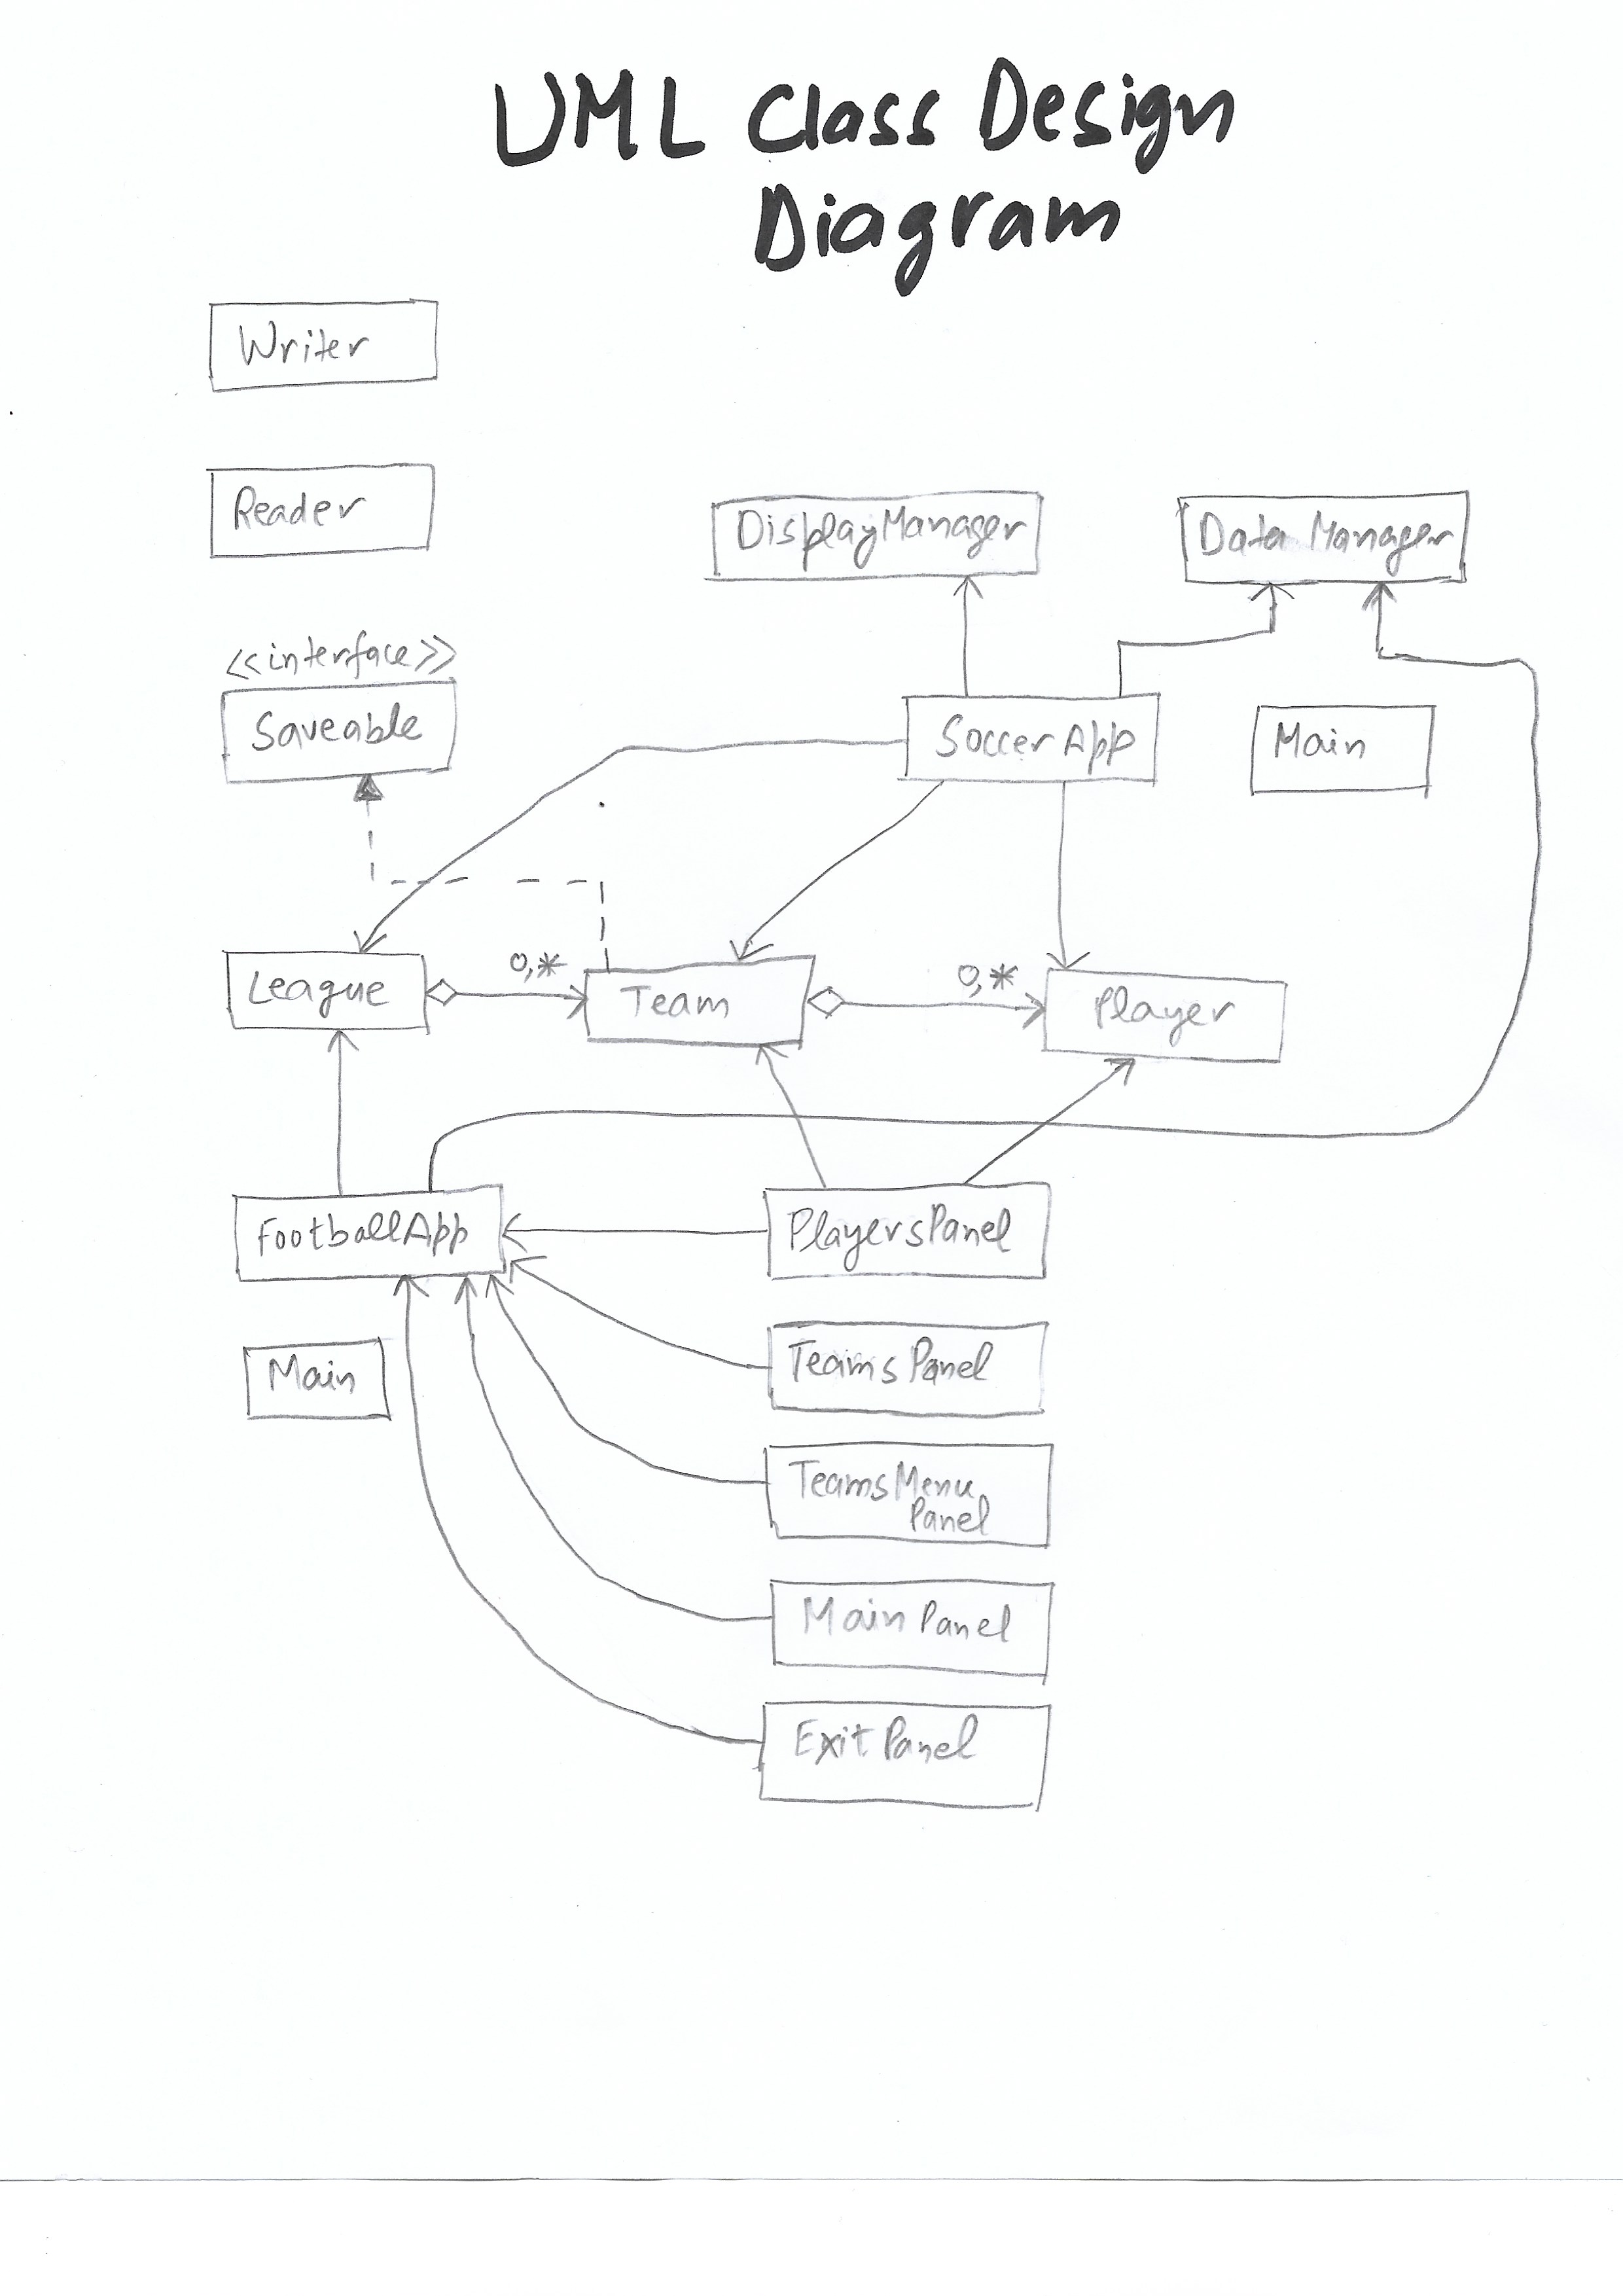 UML Class Design
Diagram
Writer
Reader
DisplayManager
Data Manager
<<interface>>
Saveable
SoccerApp
Main
League
0,*
Team
0,*
Player
FootballApp
PlayersPanel
Main
Teams Panel
TeamsMenu
Panel
Main Panel
Exit Panel